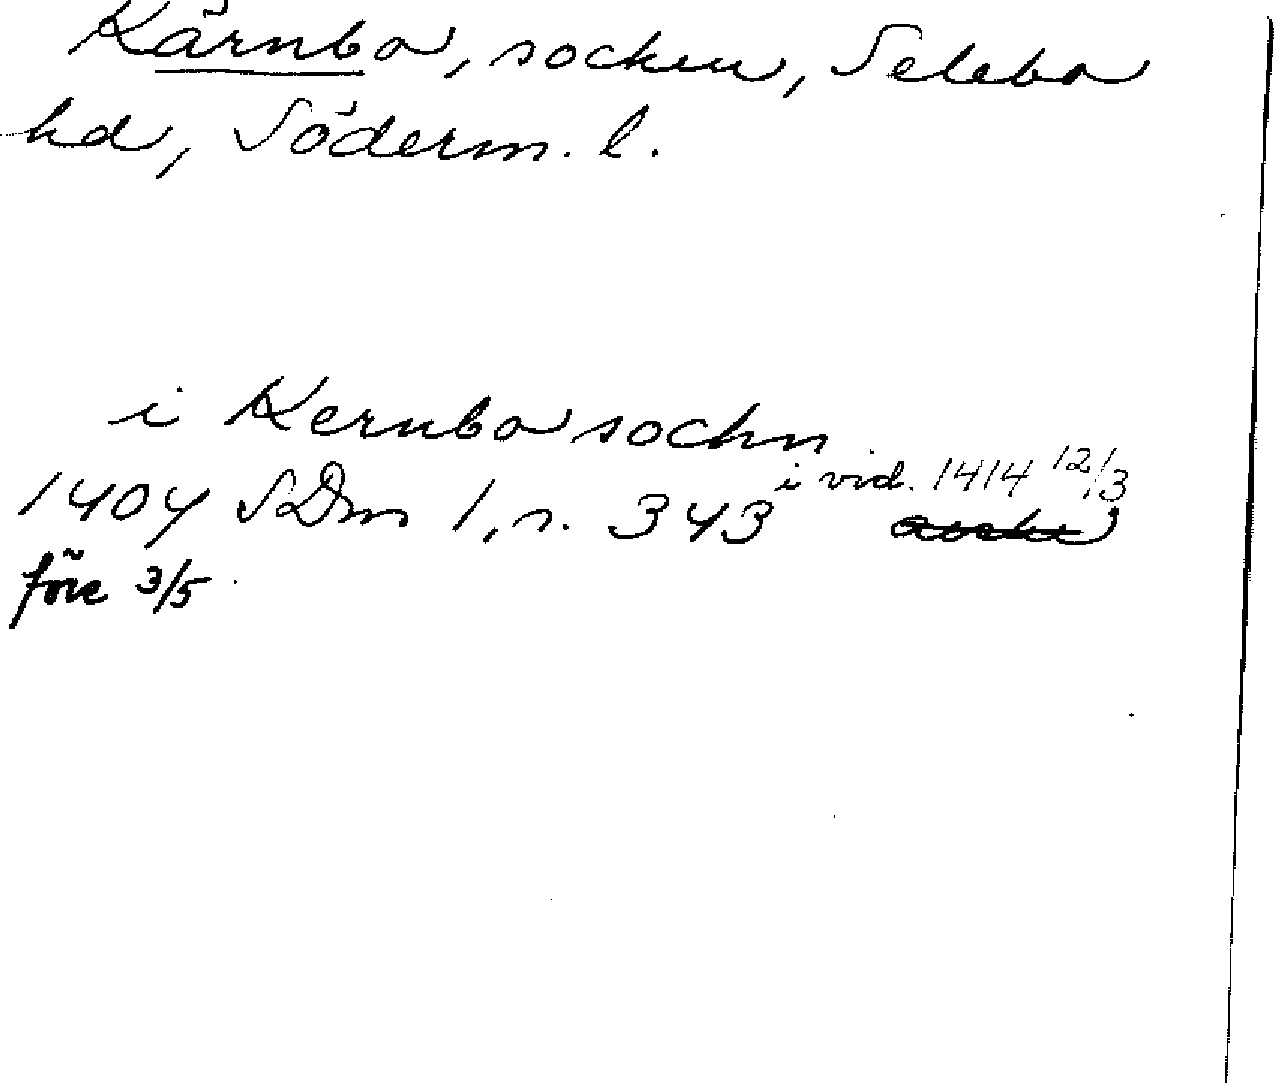 Kärnbo, socken, Selebo
hd, Söderm. l.
i Kernbo sochn
1404 SDm 1, n. 343 i vid. 1414 12/3
före 3/5